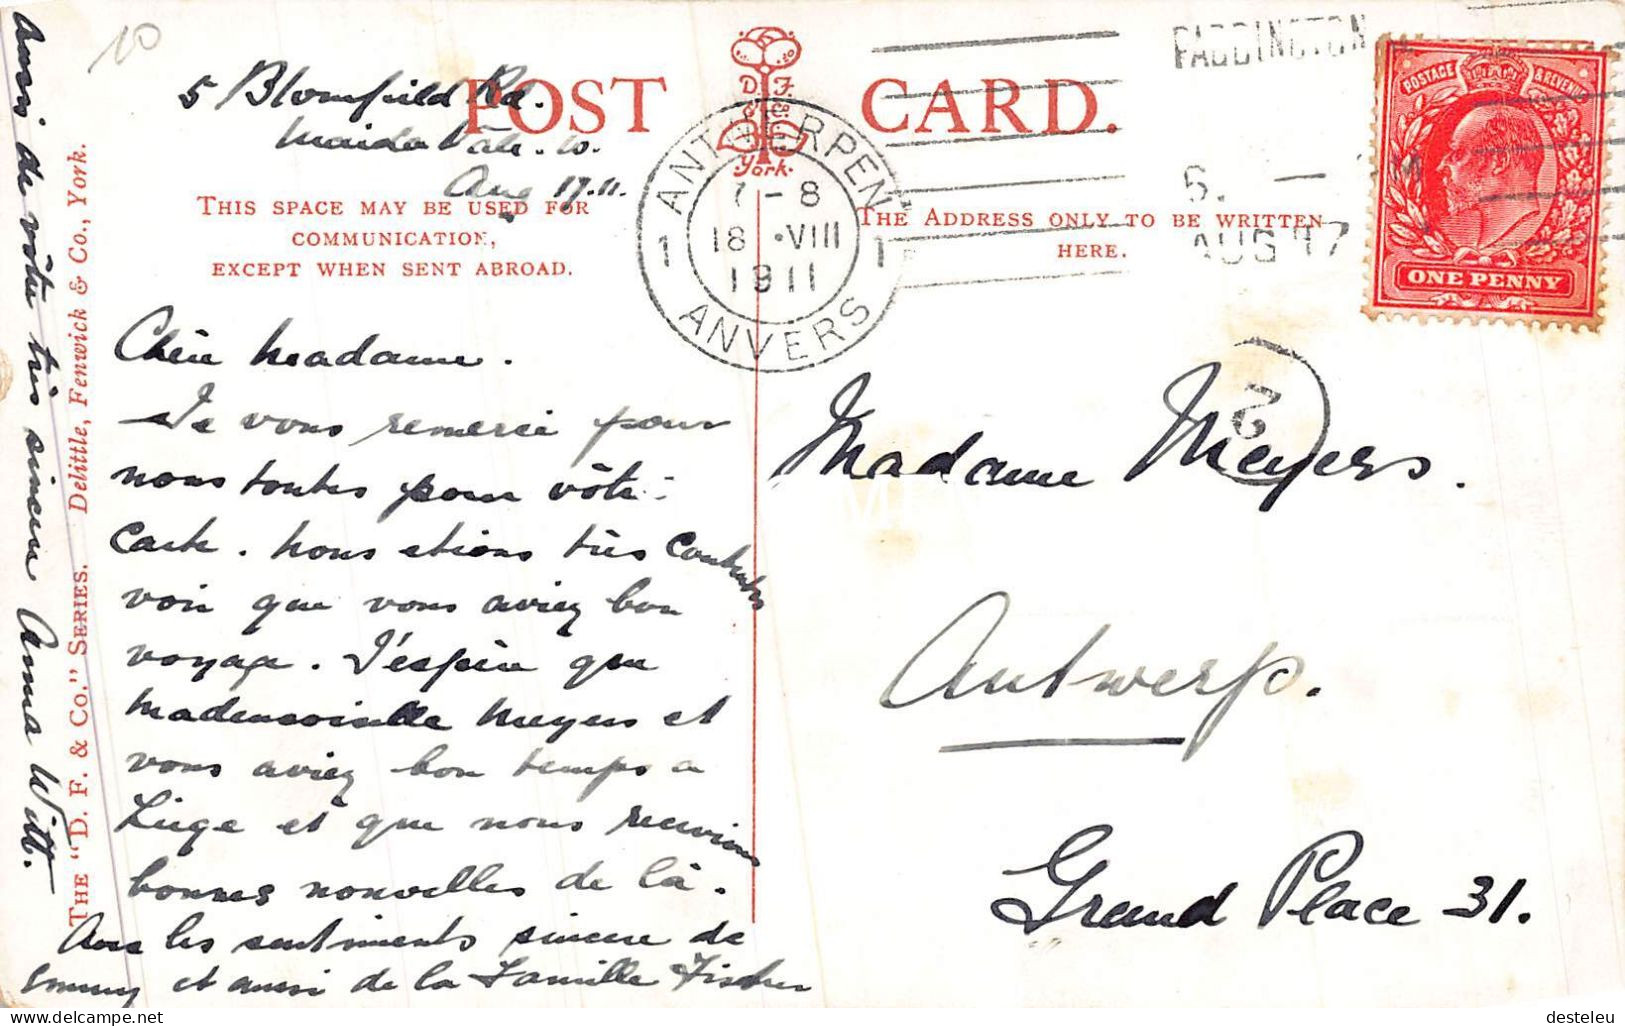 5 Blomfield Rd.
Maida Vale. W.
Aug 17. 11.
POST CARD.
D. F.
York.
THIS SPACE MAY BE USED FOR
COMMUNICATION,
EXCEPT WHEN SENT ABROAD.
THE ADDRESS ONLY TO BE WRITTEN
HERE.
PADDINGTON
AUG 17
ANTWERPEN
7-8
18 ·VIII
1911
1 1
ANVERS
POSTAGE & REVENUE
ONE PENNY
Chère Madame.
Je vous remercie pour
nous toutes pour vôtre
carte. Nous etions très contentes
voir que vous aviez bon
voyage. J'espère que
Mademoiselle Meyers et
vous aviez bon temps a
Liège et que nous recevions
bonnes nouvelles de là.
Avec les sentiments sincere de
Mummy et aussi de la Famille Fischer
aussi de vôtre très sincere Anna Witt.
THE "D. F. & CO." SERIES. Delittle, Fenwick & Co., York.
Madame Meyers.
Antwerp.
Grand Place 31.
desteleu
delcampe.net